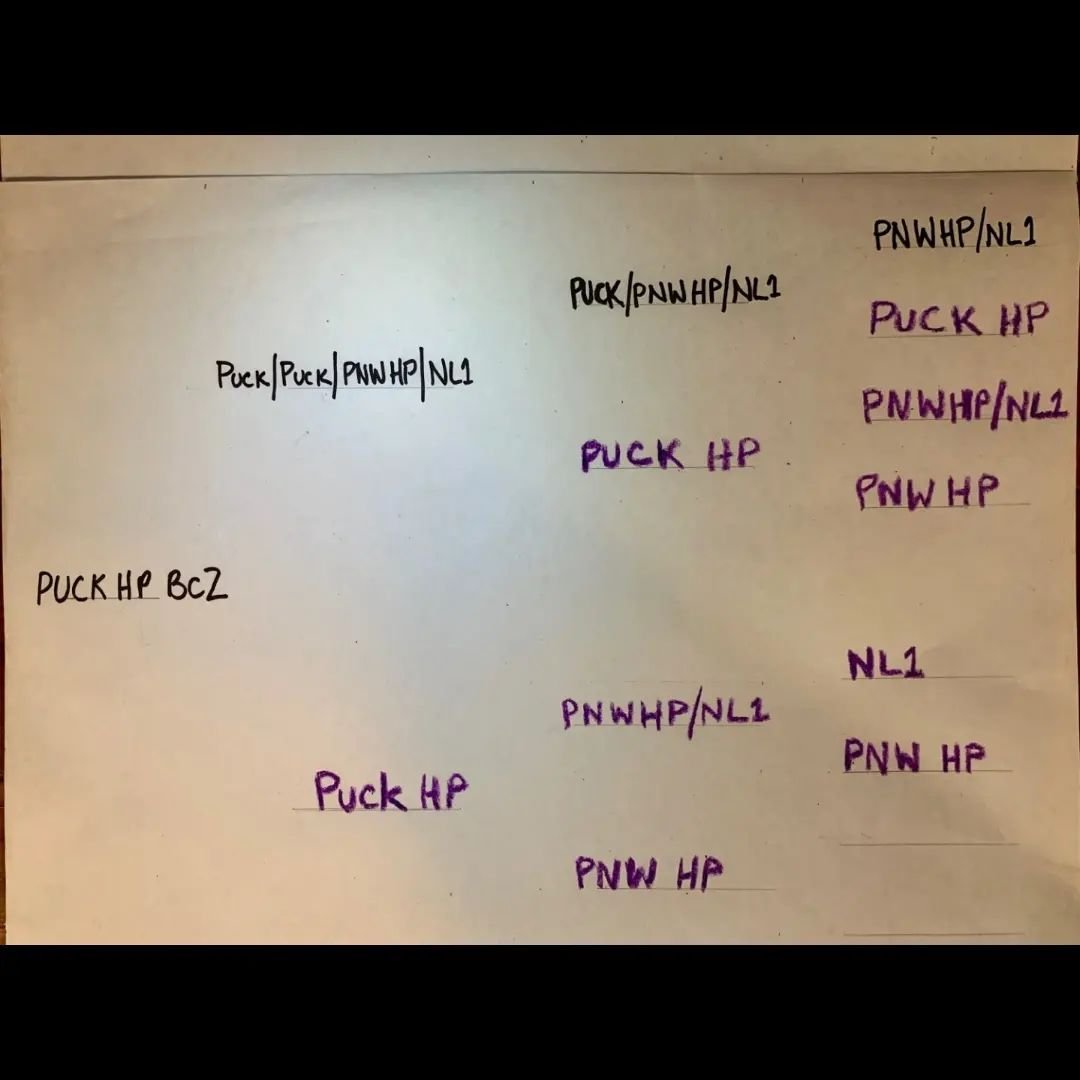 PNWHP/NL1
PUCK/PNWHP/NL1
PUCK HP
Puck/Puck/PNWHP/NL1
PNWHP/NL1
PUCK HP
PNW HP
PUCK HP BCZ
NL1
PNWHP/NL1
PNW HP
Puck HP
PNW HP